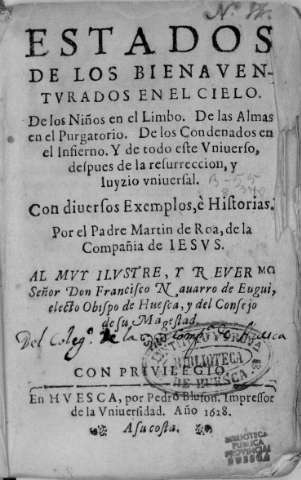 ESTADOS
DE LOS BIENAVEN-
TVRADOS EN EL CIELO.
De los Niños en el Limbo. De las Almas
en el Purgatorio. De los Condenados en
el Infierno. Y de todo este Vniuerso,
despues de la resurreccion, y
iuyzio vniuersal.
Con diuersos Exemplos, è Historias.
Por el Padre Martin de Roa, de la
Compañia de IESVS.
AL MVY ILVSTRE, Y REVER MO
Señor Don Francisco Nauarro de Eugui,
electo Obispo de Huesca, y del Consejo
de su Magestad.
Del Coleg.º de la de Huesca
BIBLIOTECA
DE HUESCA
CON PRIVILEGIO.
En HVESCA, por Pedro Bluson. Impressor
de la Vniuersidad. Año 1628.
A su costa.
BIBLIOTECA
PUBLICA
PROVINCIAL
HUESCA